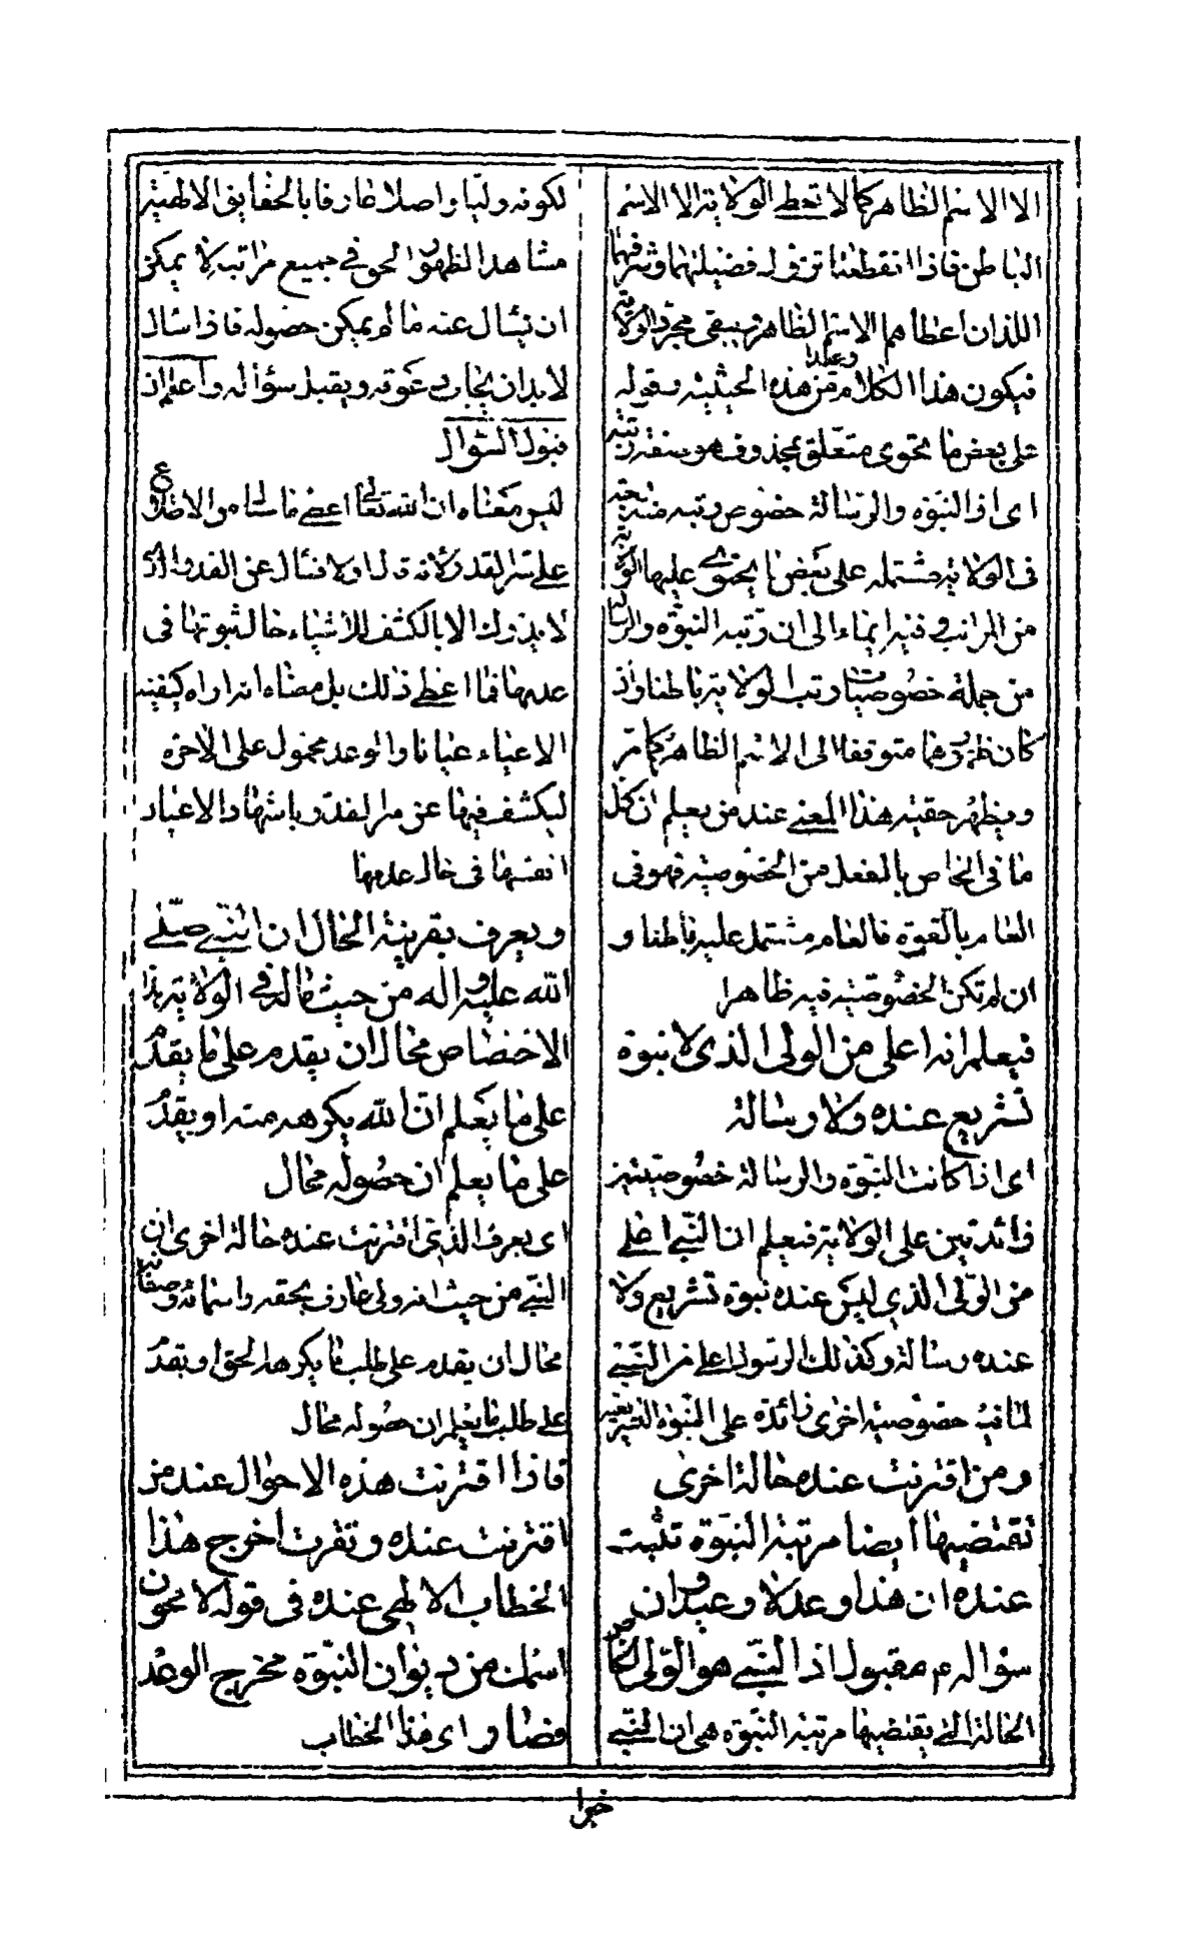 الا الاسم الظاهر كما لا تحط الولاية الا الاسم
الباطن فاذا انقطعتا تزول فضيلتهما وشرفهما
اللذان اعطاهما الاسم الظاهر ويبقى مجرد الولاية
فيكون هذا الكلام وعدا من هذه الحيثية وقوله
على بعض ما تحوى متعلق بمحذوف هو مشتملة
اى اذ النبوة والرسالة خصوص رتبة
فى الولاية مشتملة على بعض ما يحتوى عليها الولاية
من المراتب وفيه ايماء الى ان رتبة النبوة والرسالة
من جملة خصوصيات رتب الولاية باطنا واذ
كان ظهورهما متوقفا الى الاسم الظاهر كما مر
ويظهر حقية هذا المعنى عند من يعلم ان كل
ما فى الخاص بالفعل من الخصوصية فهو فى
العام بالقوة فالعام مشتمل عليه باطنا و
ان لم تكن الخصوصية فيه ظاهرا
فيعلم انه اعلى من الولى الذى لا نبوة
تشريع عنده ولا رسالة
اى اذا كانت النبوة والرسالة خصوصيتين
زائدتين على الولاية فيعلم ان النبى اعلى
من الولى الذى ليس عنده نبوة تشريع ولا
عنده رسالة وكذلك الرسول اعلى من النبى
لما فيه خصوصية اخرى زائدة على النبوة
ومن اقترنت عنده حالة اخرى
تقتضيها ايضا مرتبة النبوة تثبت
عنده ان هذا وعد لا وعيد وان
سؤاله ع مقبول اذ النبى هو الولى الخاص
الحالة التى يقتضيها مرتبة النبوة هى ان النبى
لكونه وليا واصلا عارفا بالحقايق الالهية
مشاهدا لظهور الحق فى جميع مراتبه لا يمكن
ان يسأل عنه ما لم يمكن حصوله فاذا سأل
لا بد ان يجاب دعوته ويقبل سؤاله واعلم ان
قبول السؤال
ليس معناه ان الله تعالى اعطى ما سأله من الاطلاع
على سر القدر لانه قال اولا فسأل عن القدر الذى
لا يدرك الا بالكشف للاشياء حال ثبوتها فى
عدمها فما اعطى ذلك بل معناه انه اراه كيفية
الاحياء عيانا والوعد محمول على الاخرة
ليكشف فيها عن سر القدر باشهاد الاعيان
انفسها فى حال عدمها
ويعرف بقرينة الحال ان النبى صلى
الله عليه واله من حيث ماله فى الولاية هذا
الاختصاص محال ان يقدم على ما يقدم
على ما يعلم ان الله يكرهه منه او يقدم
على ما يعلم ان حصوله محال
اى يعرف الذى اقترنت عنده حالة اخرى ان
النبى من حيث انه ولى عارف بحقه واسمائه وصفاته
محال ان يقدم على طلب ما يكرهه الحق او يقدم
على طلب ما يعلم ان حصوله محال
فاذا اقترنت هذه الاحوال عند من
اقترنت عنده وتقررت اخرج هذا
الخطاب الالهى عنده فى قوله لامحون
اسمك من ديوان النبوة مخرج الوعد
فصار اى هذا الخطاب
خبرا